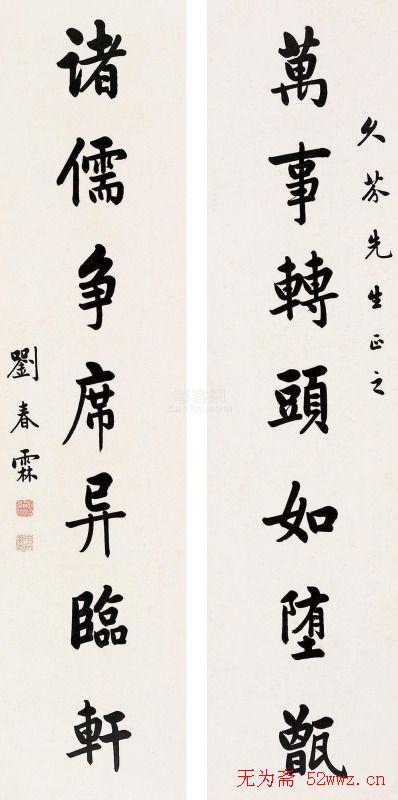 久芬先生正之
萬事轉頭如堕甑
诸儒争席异臨軒
劉春霖
无为斋 52wwz.cn